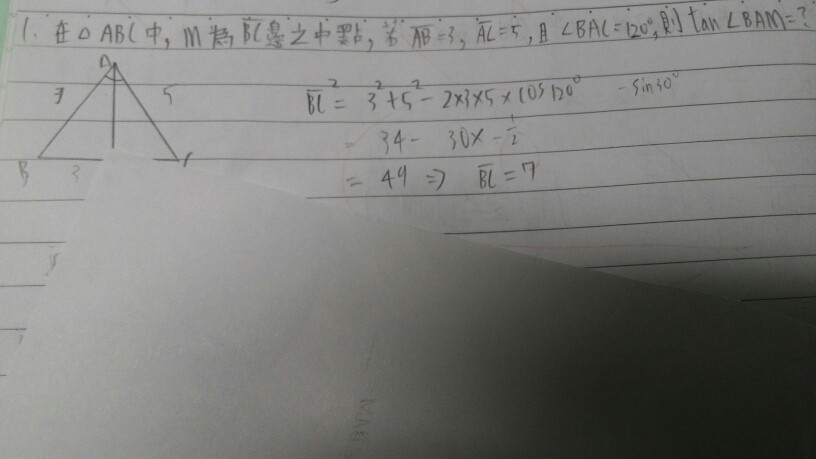 1. 在△ABC中, M為BC邊之中點, 若AB=3, AC=5, 且∠BAC=120°, 則tan∠BAM=?
A
3
5
B
3
C
BC² = 3²+5²-2×3×5×cos120° -sin30°
= 34 - 30×-1/2
= 49 => BC=7